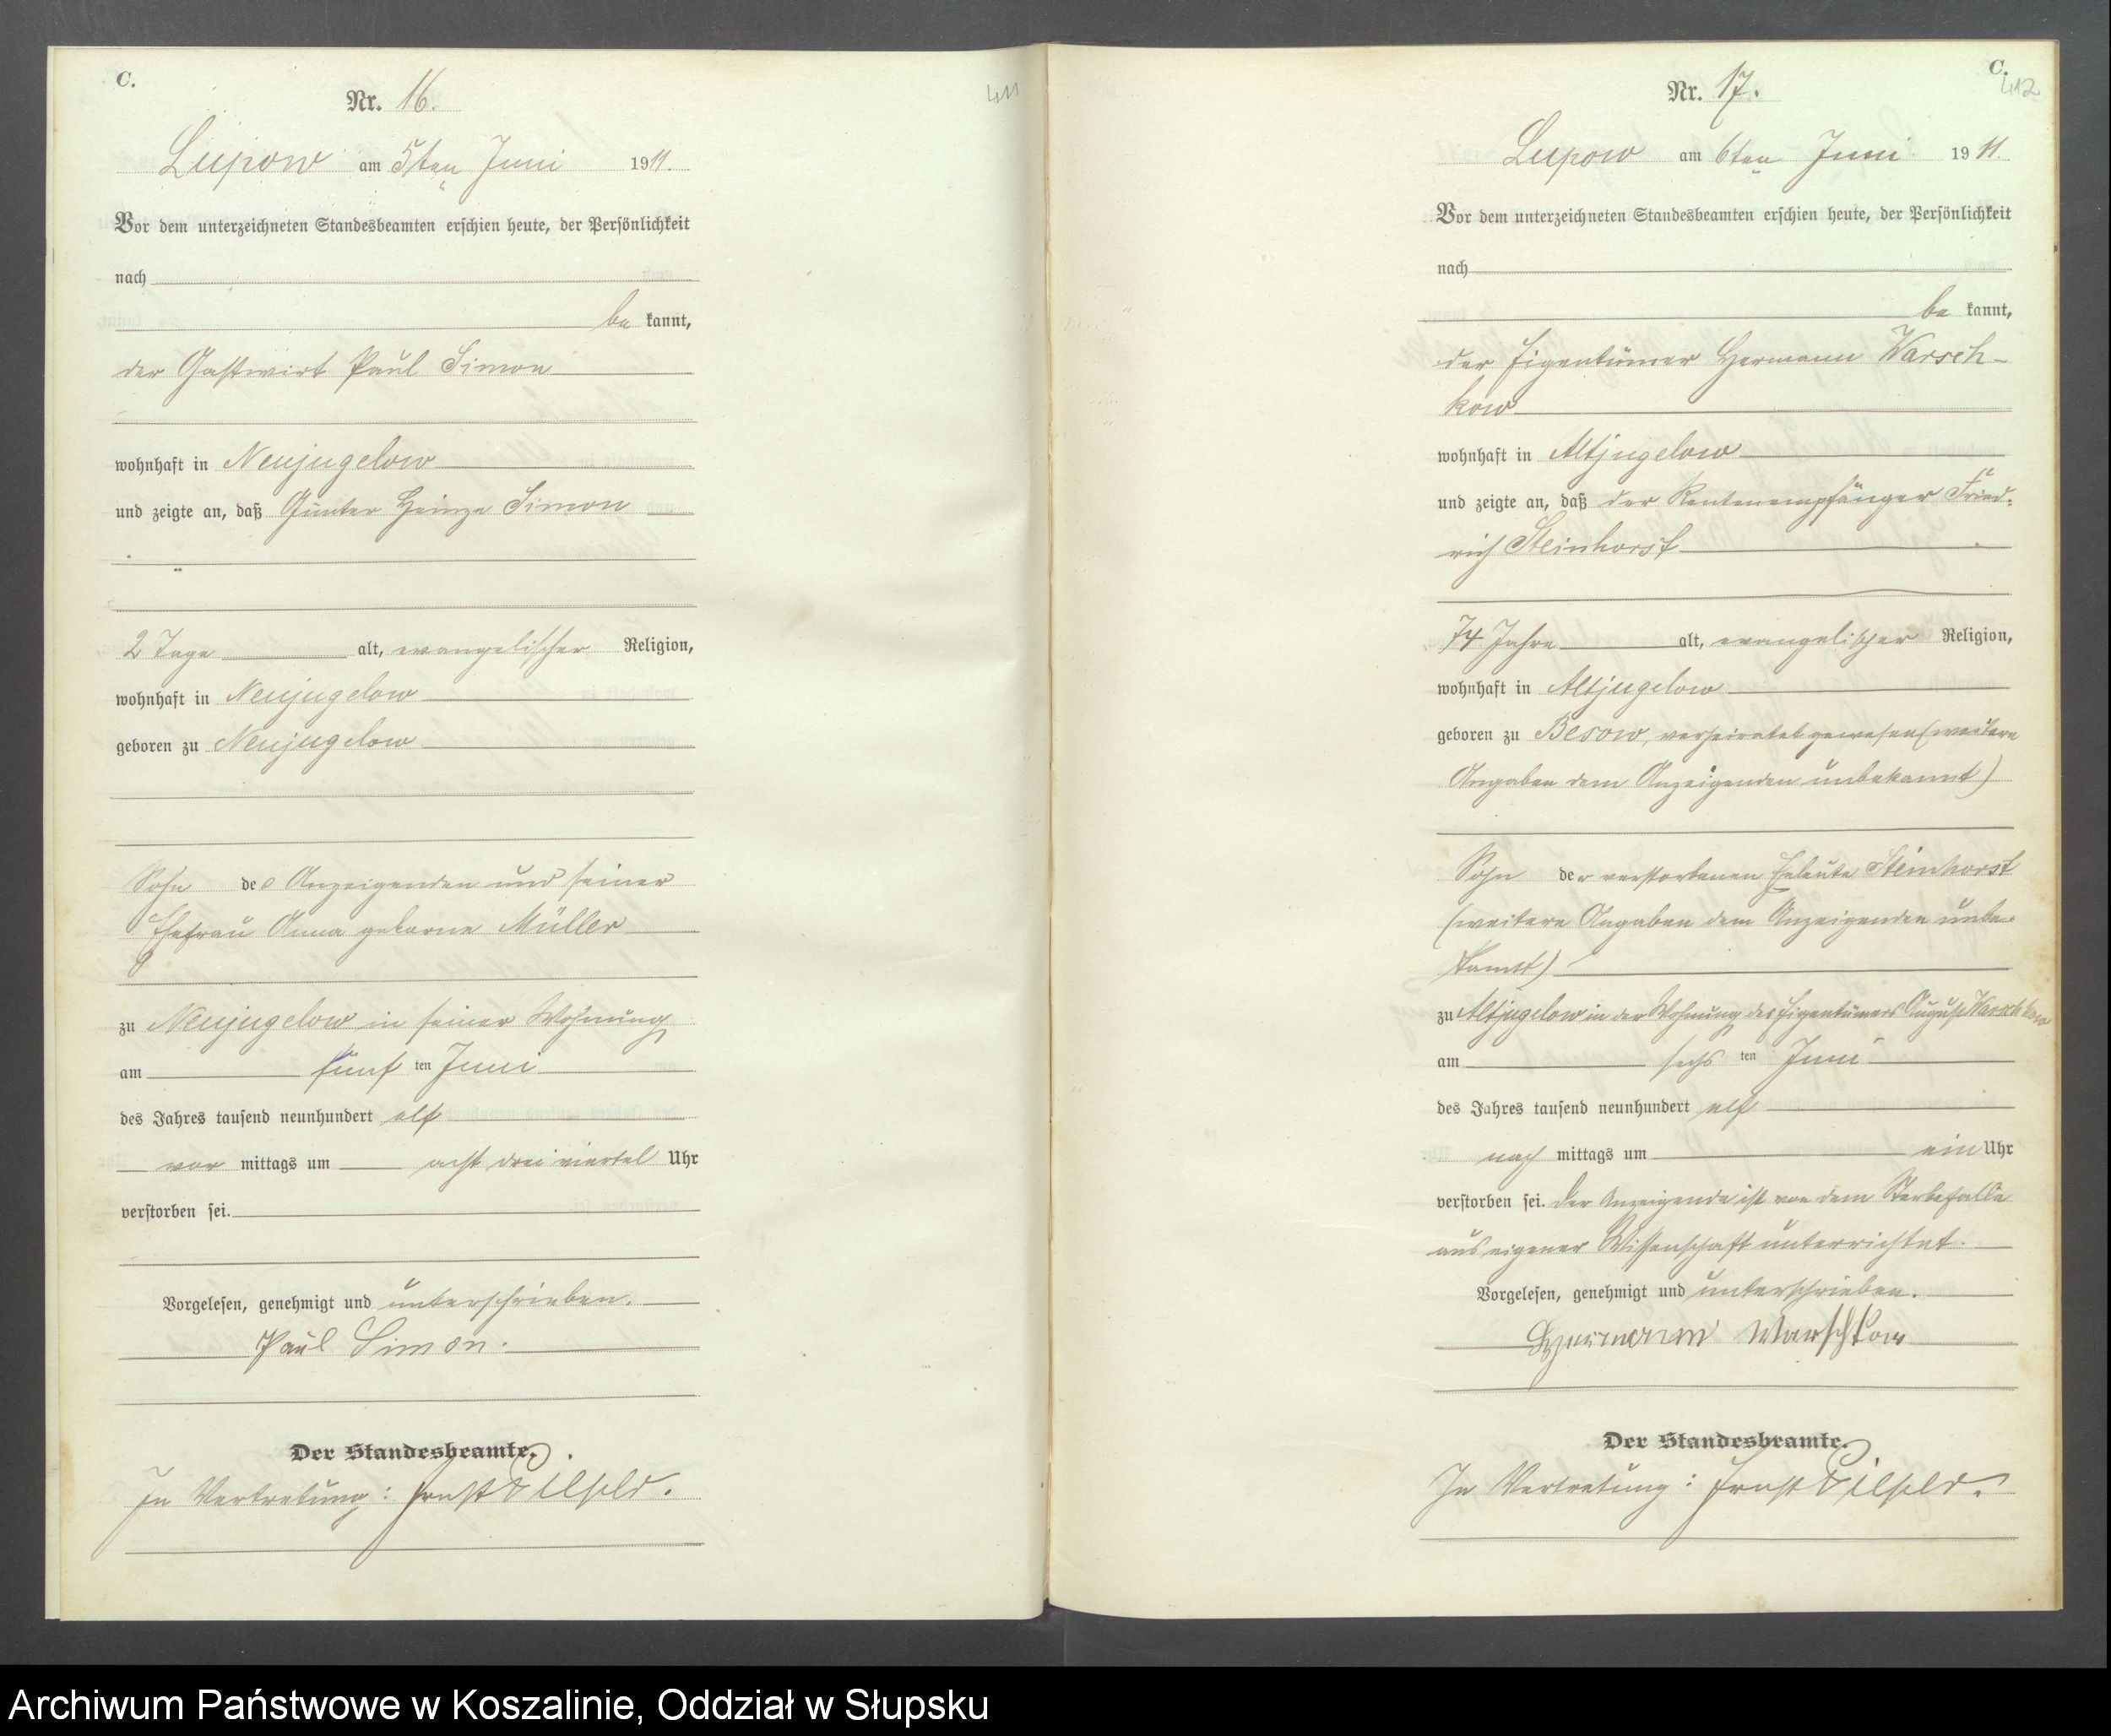 C.
Nr. 16.
411
Lupow am 5ten Juni 1911.
Vor dem unterzeichneten Standesbeamten erschien heute, der Persönlichkeit
nach
be kannt,
der Gastwirt Paul Simon
wohnhaft in Neujugelow
und zeigte an, daß Günter Heinze Simon
2 Tage alt, evangelischer Religion,
wohnhaft in Neujugelow
geboren zu Neujugelow
Sohn des Anzeigenden und seiner
Ehefrau Anna geborne Müller
zu Neujugelow in seiner Wohnung
am fünf ten Juni
des Jahres tausend neunhundert elf
vor mittags um acht drei viertel Uhr
verstorben sei.
Vorgelesen, genehmigt und unterschrieben.
Paul Simon.
Der Standesbeamte.
In Vertretung: Ernst
C.
412
Nr. 17.
Lupow am 6ten Juni 1911.
Vor dem unterzeichneten Standesbeamten erschien heute, der Persönlichkeit
nach
be kannt,
der Eigentümer Hermann Warsch-
kow
wohnhaft in Altjugelow
und zeigte an, daß der Rentenempfänger Fried-
rich Steinhorst
74 Jahre alt, evangelischer Religion,
wohnhaft in Altjugelow
geboren zu Besow, verheiratet gewesen (weitere
Angaben dem Anzeigenden unbekannt)
Sohn der verstorbenen Eheleute Steinhorst
(weitere Angaben dem Anzeigenden unbe-
kannt)
zu Altjugelow in der Wohnung des Eigentümers August Warschkow
am sechs ten Juni
des Jahres tausend neunhundert elf
nach mittags um ein Uhr
verstorben sei. Der Anzeigende ist von dem Sterbefalle
aus eigener Wissenschaft unterrichtet.
Vorgelesen, genehmigt und unterschrieben.
Hermann Warschkow
Der Standesbeamte.
In Vertretung: Ernst
Archiwum Państwowe w Koszalinie, Oddział w Słupsku